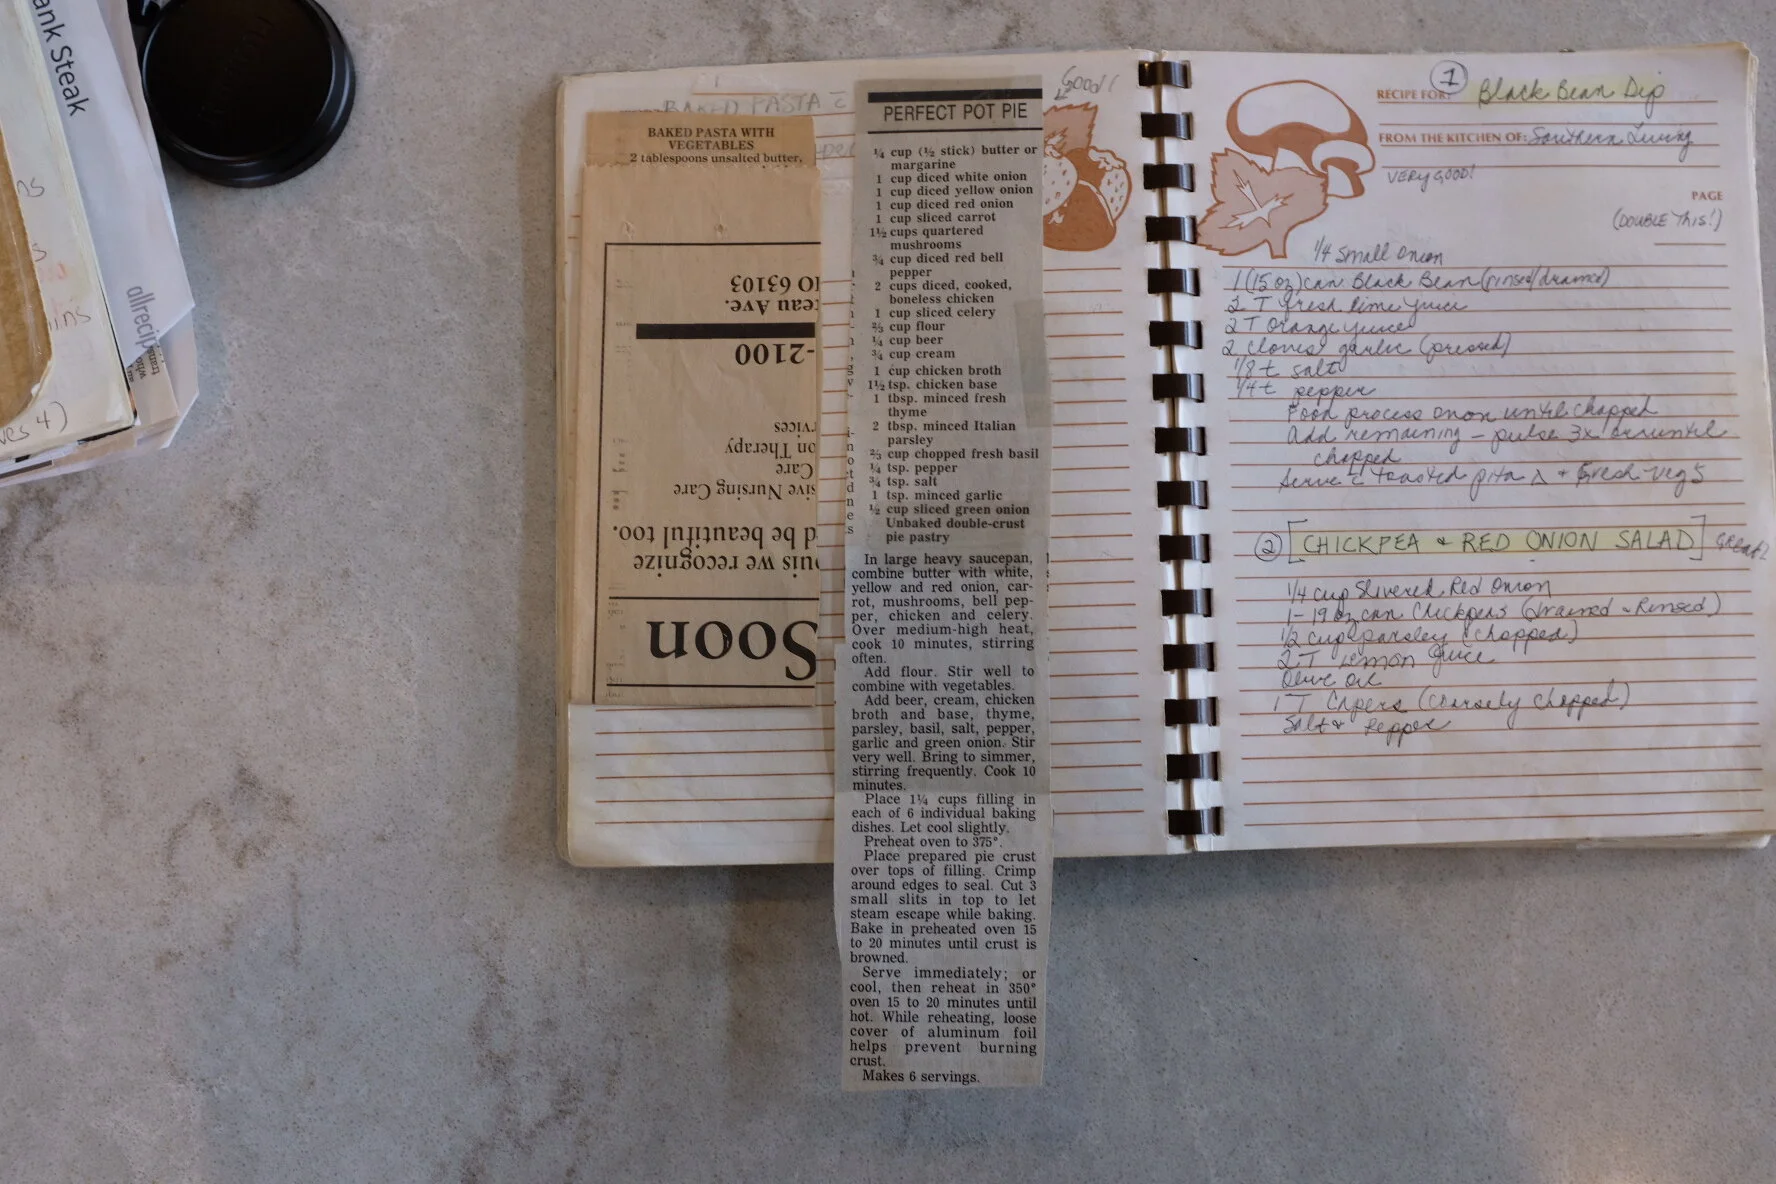 ank Steak
allrecip
ves 4)
BAKED PASTA
BAKED PASTA WITH
VEGETABLES
2 tablespoons unsalted butter,
MO 63103
teau Ave.
-2100
rvices
on Therapy
Care
sive Nursing Care
d be beautiful too.
ouis we recognize
Soon
Good!
PERFECT POT PIE
¼ cup (½ stick) butter or
margarine
1 cup diced white onion
1 cup diced yellow onion
1 cup diced red onion
1 cup sliced carrot
1½ cups quartered
mushrooms
¾ cup diced red bell
pepper
2 cups diced, cooked,
boneless chicken
1 cup sliced celery
⅔ cup flour
¼ cup beer
¾ cup cream
1 cup chicken broth
1½ tsp. chicken base
1 tbsp. minced fresh
thyme
2 tbsp. minced Italian
parsley
⅔ cup chopped fresh basil
¼ tsp. pepper
¾ tsp. salt
1 tsp. minced garlic
½ cup sliced green onion
Unbaked double-crust
pie pastry
In large heavy saucepan,
combine butter with white,
yellow and red onion, car-
rot, mushrooms, bell pep-
per, chicken and celery.
Over medium-high heat,
cook 10 minutes, stirring
often.
Add flour. Stir well to
combine with vegetables.
Add beer, cream, chicken
broth and base, thyme,
parsley, basil, salt, pepper,
garlic and green onion. Stir
very well. Bring to simmer,
stirring frequently. Cook 10
minutes.
Place 1¼ cups filling in
each of 6 individual baking
dishes. Let cool slightly.
Preheat oven to 375°.
Place prepared pie crust
over tops of filling. Crimp
around edges to seal. Cut 3
small slits in top to let
steam escape while baking.
Bake in preheated oven 15
to 20 minutes until crust is
browned.
Serve immediately; or
cool, then reheat in 350°
oven 15 to 20 minutes until
hot. While reheating, loose
cover of aluminum foil
helps prevent burning
crust.
Makes 6 servings.
1
RECIPE FOR: Black Bean Dip
FROM THE KITCHEN OF: Southern Living
VERY GOOD!
PAGE
(DOUBLE THIS!)
1/4 Small Onion
1 (15 oz) can Black Bean (rinsed/drained)
2 T fresh lime juice
2 T Orange juice
2 cloves garlic (pressed)
1/8 t salt
1/4 t pepper
Food process onion until chopped
Add remaining - pulse 3x or until
chopped
Serve c̄ toasted pita Δ + Fresh veg's
2 [CHICKPEA & RED ONION SALAD] GREAT!
1/4 cup Slivered Red Onion
1 - 19 oz can Chickpeas (drained & Rinsed)
1/2 cup parsley (chopped)
2 T Lemon Juice
Olive oil
1 T Capers (coarsely chopped)
Salt & Pepper